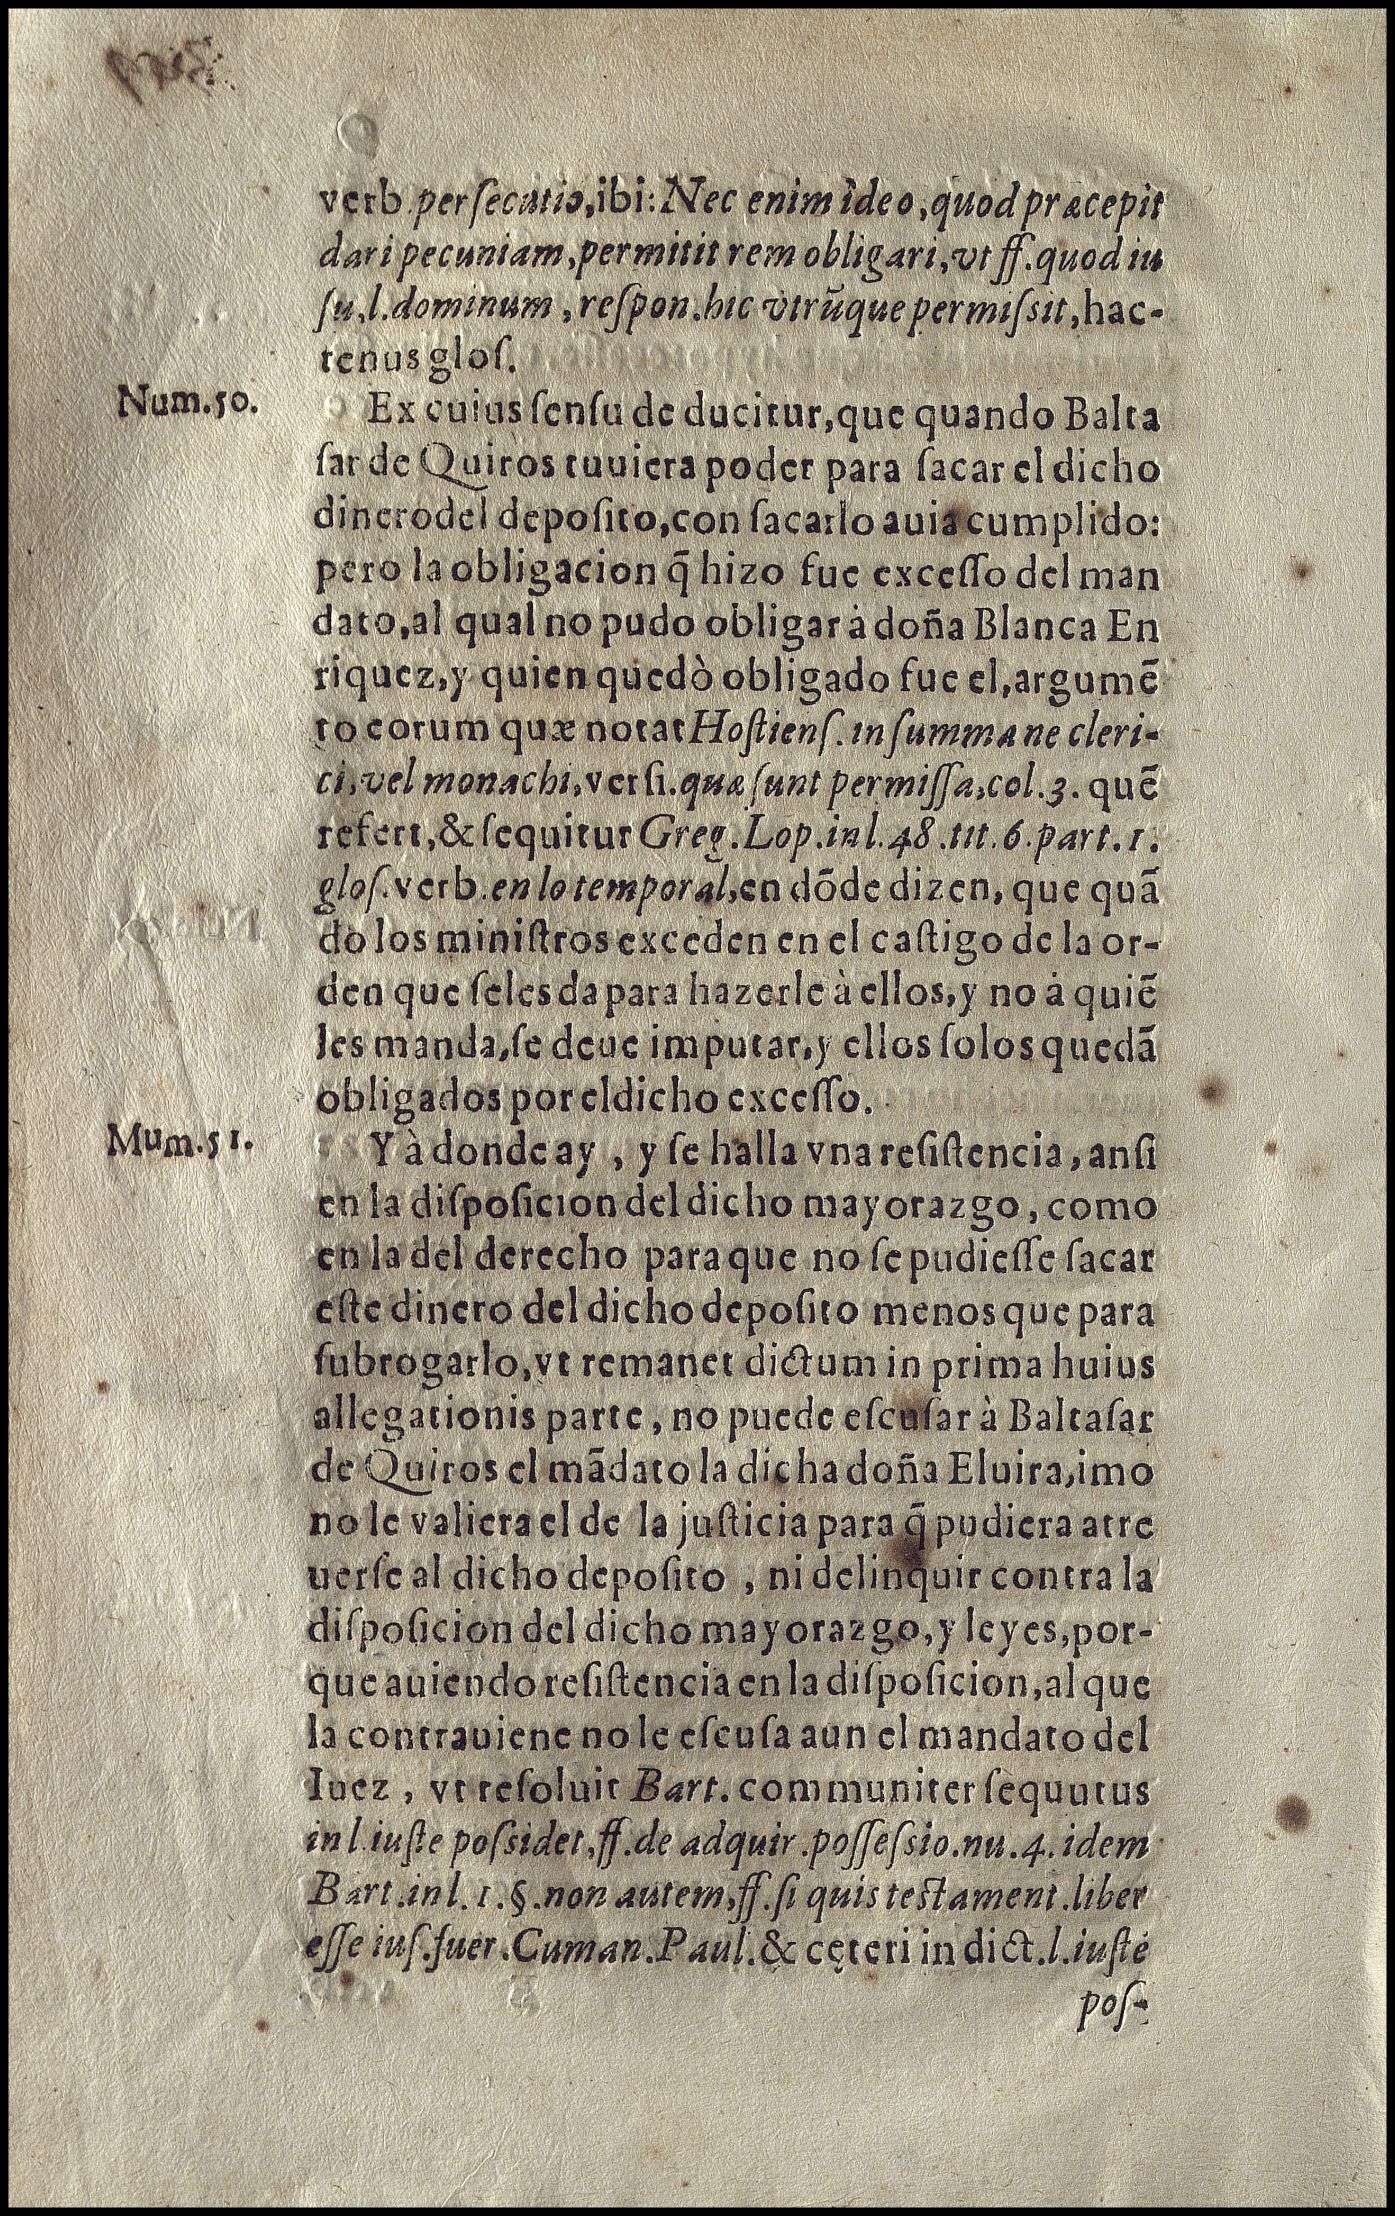 verb.persecutio,ibi: Nec enim ideo, quod præcepit
dari pecuniam, permitit rem obligari, vt ff. quod iu
ſu, l. dominum, reſpon. hic vtrũque permiſsit, hac-
tenus gloſ.
Num.50.
Ex cuius ſenſu de ducitur, que quando Balta
ſar de Quiros tuuiera poder para ſacar el dicho
dinerodel depoſito, con ſacarlo auia cumplido:
pero la obligacion q̃ hizo fue exceſſo del man
dato, al qual no pudo obligar à doña Blanca En
riquez, y quien quedò obligado fue el, argumẽ
to eorum quæ notat Hoſtienſ. in ſumma ne cleri-
ci, vel monachi, verſi. quæ ſunt permiſſa, col. 3. quẽ
refert, & ſequitur Greg. Lop. in l. 48. tit. 6. part. 1.
gloſ. verb. en lo temporal, en dõde dizen, que quã
do los miniſtros exceden en el caſtigo de la or-
den que ſeles da para hazerle à ellos, y no à quiẽ
les manda, ſe deue imputar, y ellos ſolos quedã
obligados por eldicho exceſſo.
Mum.51.
Y à donde ay, y ſe halla vna reſiſtencia, anſi
en la diſpoſicion del dicho mayorazgo, como
en la del derecho para que no ſe pudieſſe ſacar
eſte dinero del dicho depoſito menos que para
ſubrogarlo, vt remanet dictum in prima huius
allegationis parte, no puede eſcuſar à Baltaſar
de Quiros el mãdato la dicha doña Eluira, imo
no le valiera el de la juſticia para q̃ pudiera atre
uerſe al dicho depoſito, ni delinquir contra la
diſpoſicion del dicho mayorazgo, y leyes, por-
que auiendo reſiſtencia en la diſpoſicion, al que
la contrauiene no le eſcuſa aun el mandato del
Iuez, vt reſoluit Bart. communiter ſequutus
in l. iuſte poſsidet, ff. de adquir. poſſeſsio. nu. 4. idem
Bart. in l. 1. §. non autem, ff. ſi quis teſtament. liber
eſſe iuſ. fuer. Cuman. Paul. & cęteri in dict. l. iuſtè
poſ-